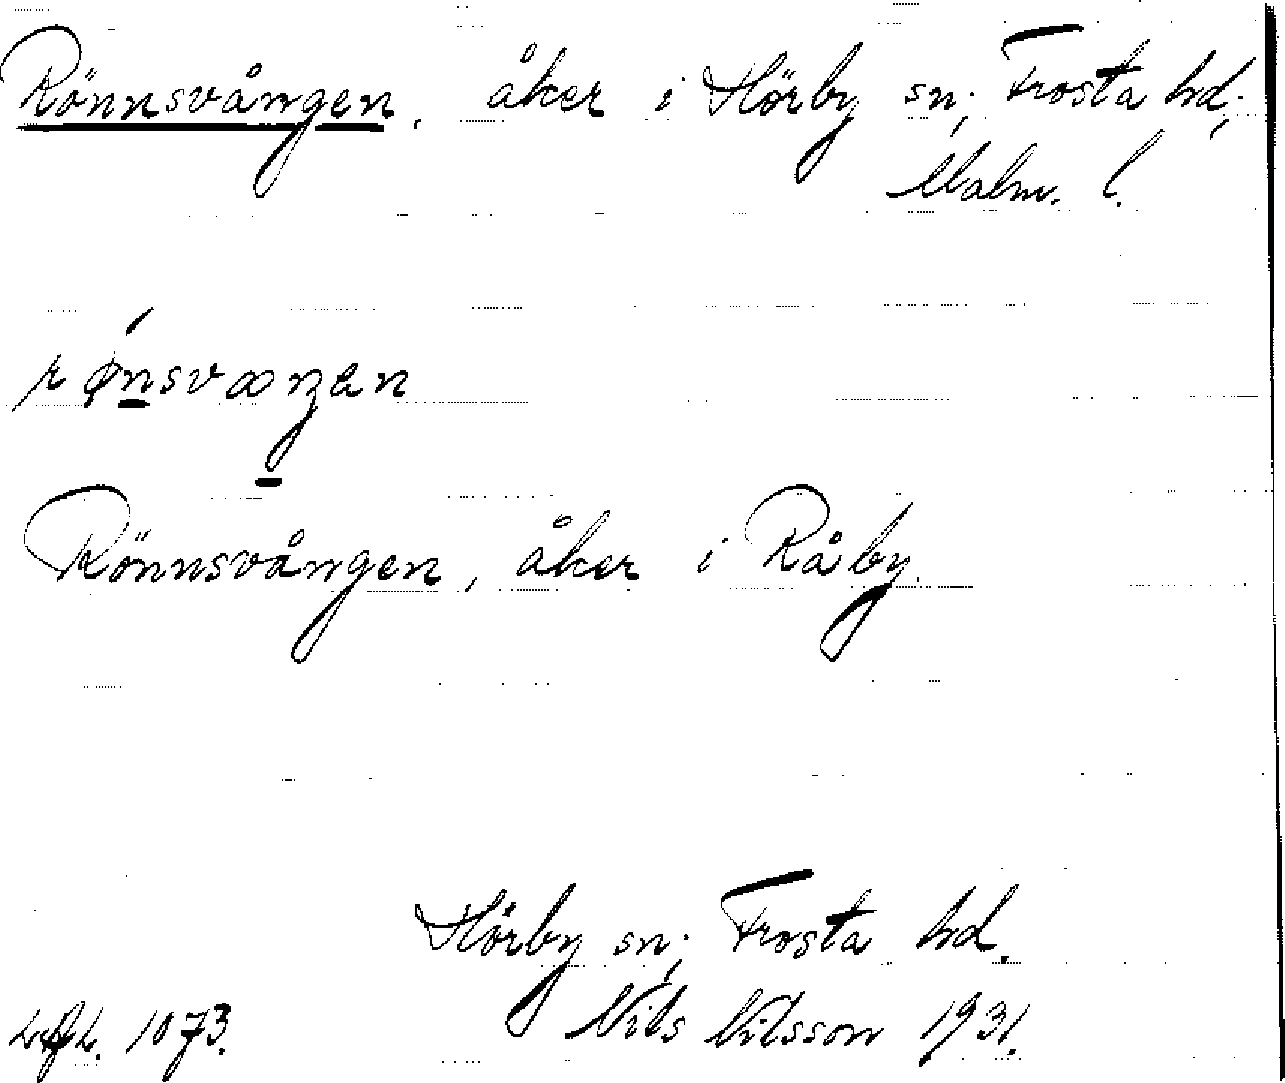 Rönnsvången, åker i Hörby sn, Frosta hd,
Malm. l.
Rönnsvången, åker i Råby.
Hörby sn, Frosta hd.
1073. Nils Nilsson 1931.